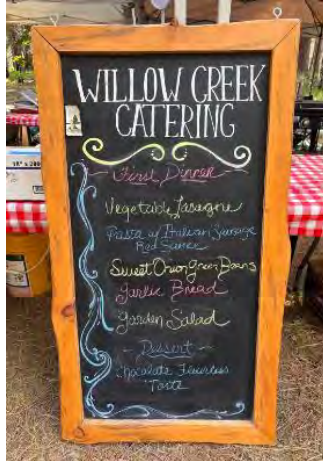 WILLOW CREEK
CATERING
First Dinner
Vegetable Lasagne
Pasta w/ Italian Sausage
Red Sauce
Sweet Onion Green Beans
Garlic Bread
Garden Salad
- Dessert -
Chocolate Flourless
Torte